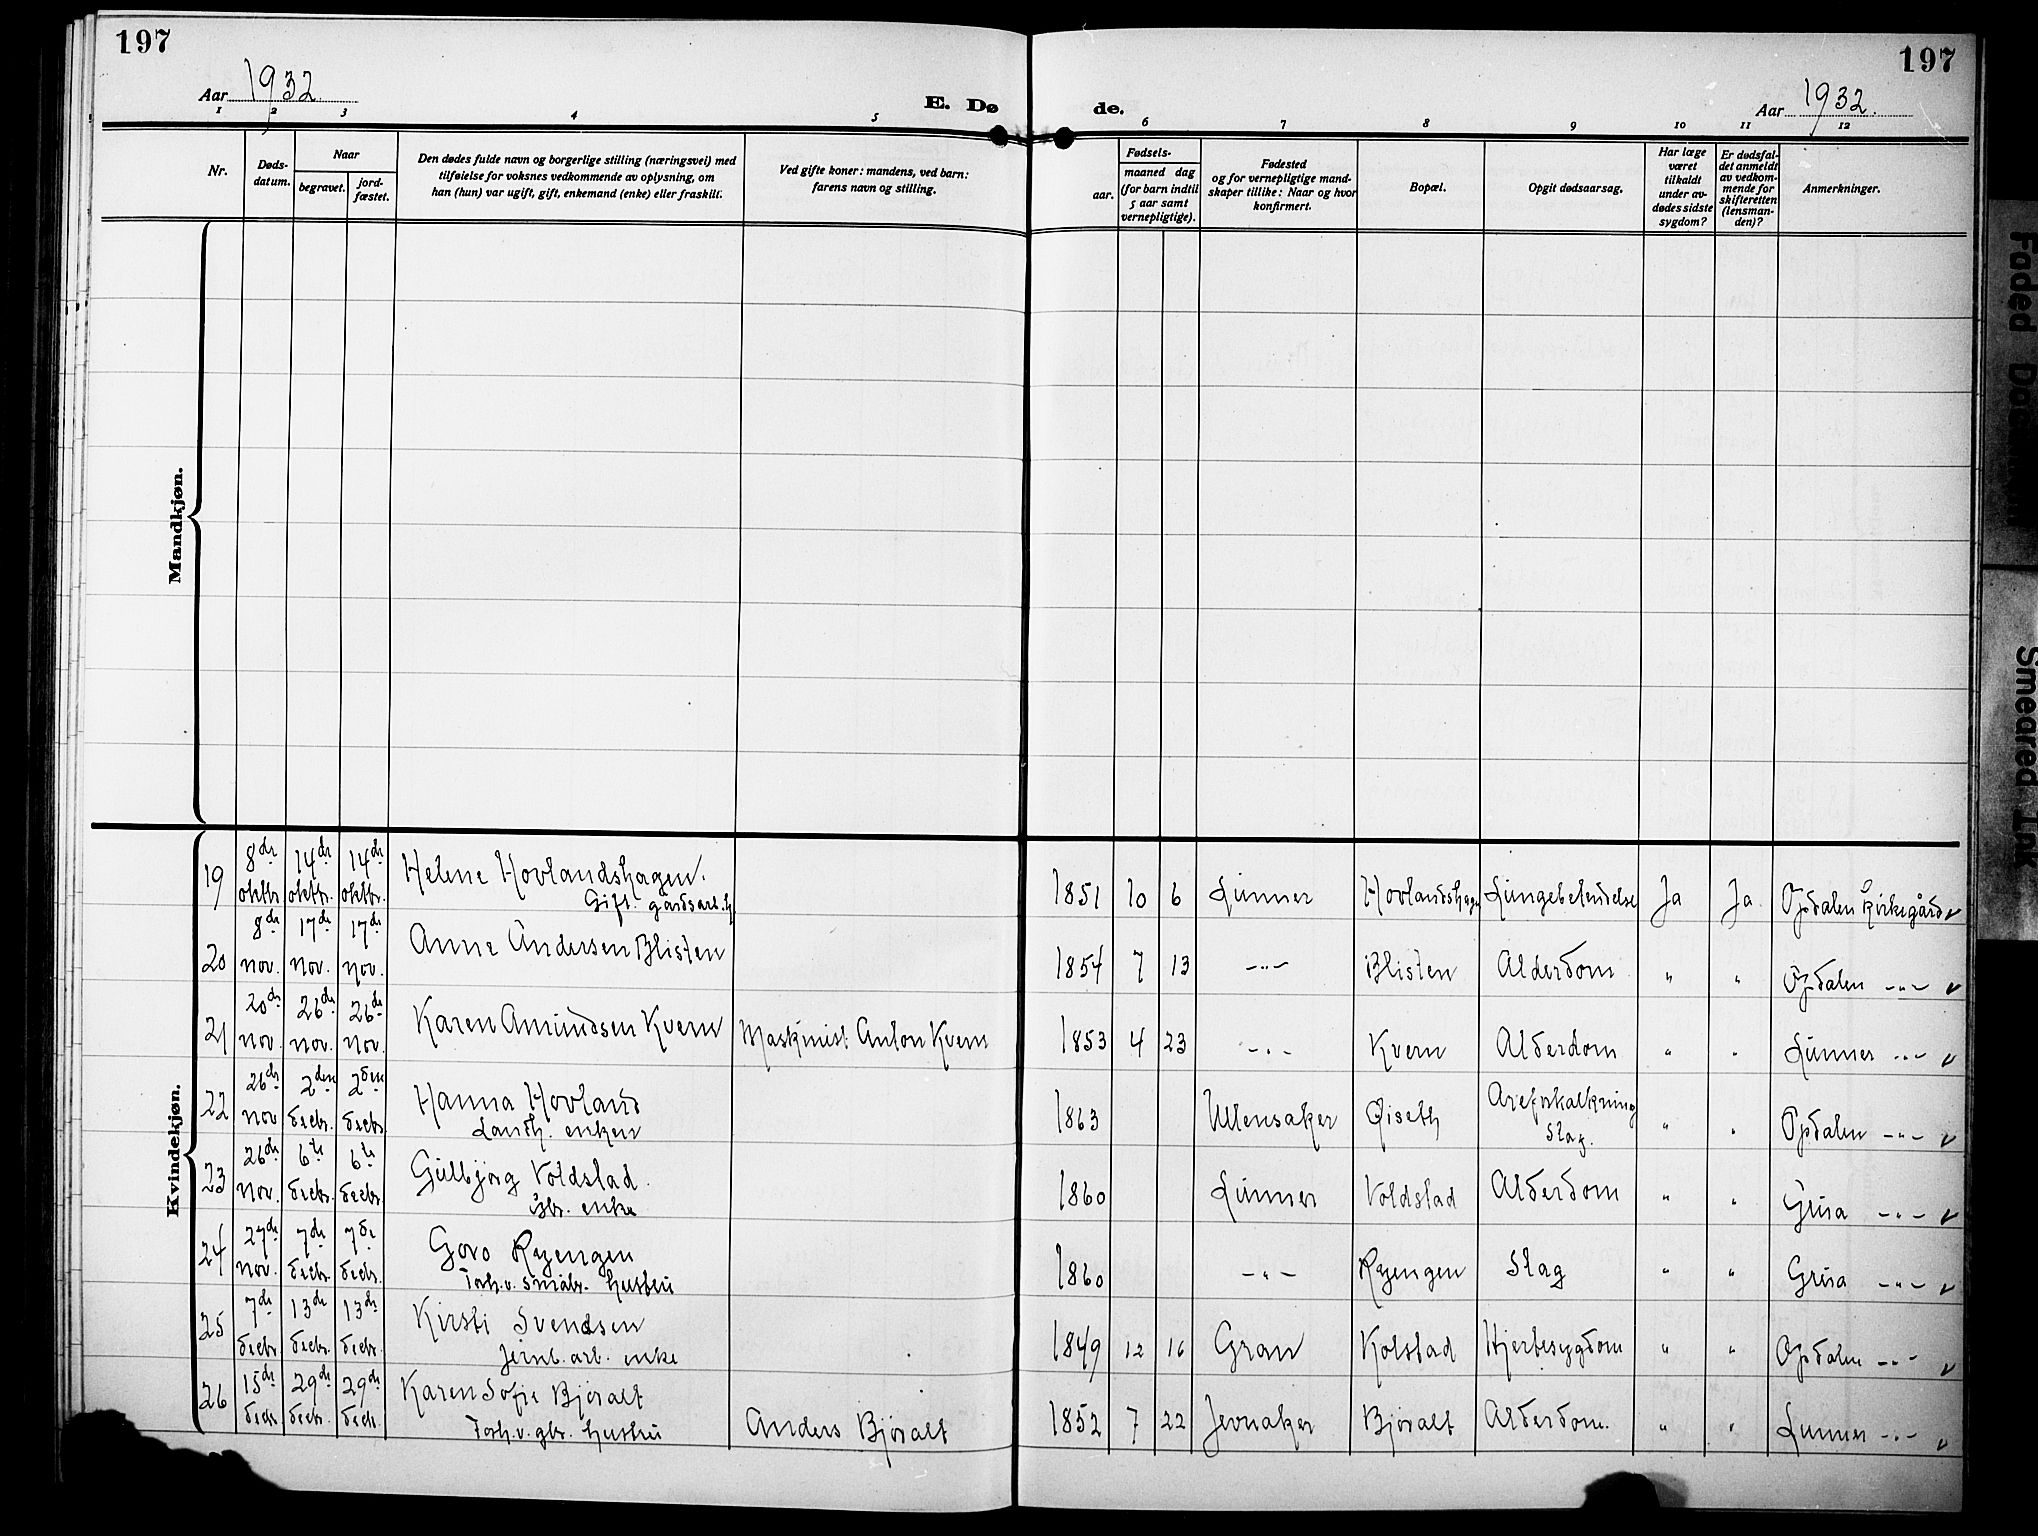 197
197
Aar 1932.
E. Døde.
Aar 1932.
1 2 3 4 5 6 7 8 9 10 11 12
Nr.
Døds-datum.
Naar
begravet.
jord-fæstet.
Den dødes fulde navn og borgerlige stilling (næringsvei) med
tilføielse for voksnes vedkommende av oplysning, om
han (hun) var ugift, gift, enkemand (enke) eller fraskilt.
Ved gifte koner: mandens, ved barn:
farens navn og stilling.
Fødsels-
aar.
maaned dag
(for barn indtil
5 aar samt
vernepligtige).
Fødested
og for vernepligtige mand-
skaper tillike: Naar og hvor
konfirmert.
Bopæl.
Opgit dødsaarsag.
Har læge
været
tilkaldt
under av-
dødes sidste
sygdom?
Er dødsfal-
det anmeldt
av vedkom-
mende for
skifteretten
(lensman-
den)?
Anmerkninger.
Mandkjøn.
Kvindekjøn.
19 8de oktbr. 14de oktbr. 14de oktbr. Helene Hovlandshagen. Gift. gårdsarb. 1851 10 6 Lunner Hovlandshagen Lungebetendelse Ja Ja Opdalen kirkegård
20 8de nov. 17de nov. 17de nov. Anne Andersen Blisten 1854 7 13 -"- Blisten Alderdom " " Opdalen -"-
21 20de nov. 26de nov. 26de nov. Karen Amundsen Kvern Maskinist Anton Kvern 1853 4 23 -"- Kvern Alderdom " " Lunner -"-
22 26de nov 2den decbr. 2den decbr. Hanna Hovland Landh. enken 1863 Ullensaker Øiseth Areforkalkning Slag. " " Opdalen -"-
23 26de nov. 6te decbr. 6te decbr. Gulbjørg Voldstad. gbr. enke 1860 Lunner Voldstad Alderdom " " Grua -"-
24 27de nov. 7de decbr. 7de decbr. Goro Ryengen Forh.v. småbr. hustru 1860 -"- Ryengen Slag " " Grua -"-
25 7de decbr. 13de decbr. 13de decbr. Kirsti Svendsen jernb. arb. enke 1849 12 16 Gran Kolstad Hjertesygdom " " Opdalen -"-
26 15de decbr. 29de decbr. 29de decbr. Karen Sofie Bjøralt Forh.v. gbr. hustru Anders Bjøralt 1852 7 22 Jevnaker Bjøralt Alderdom. " " Lunner -"-
Smeared Ink